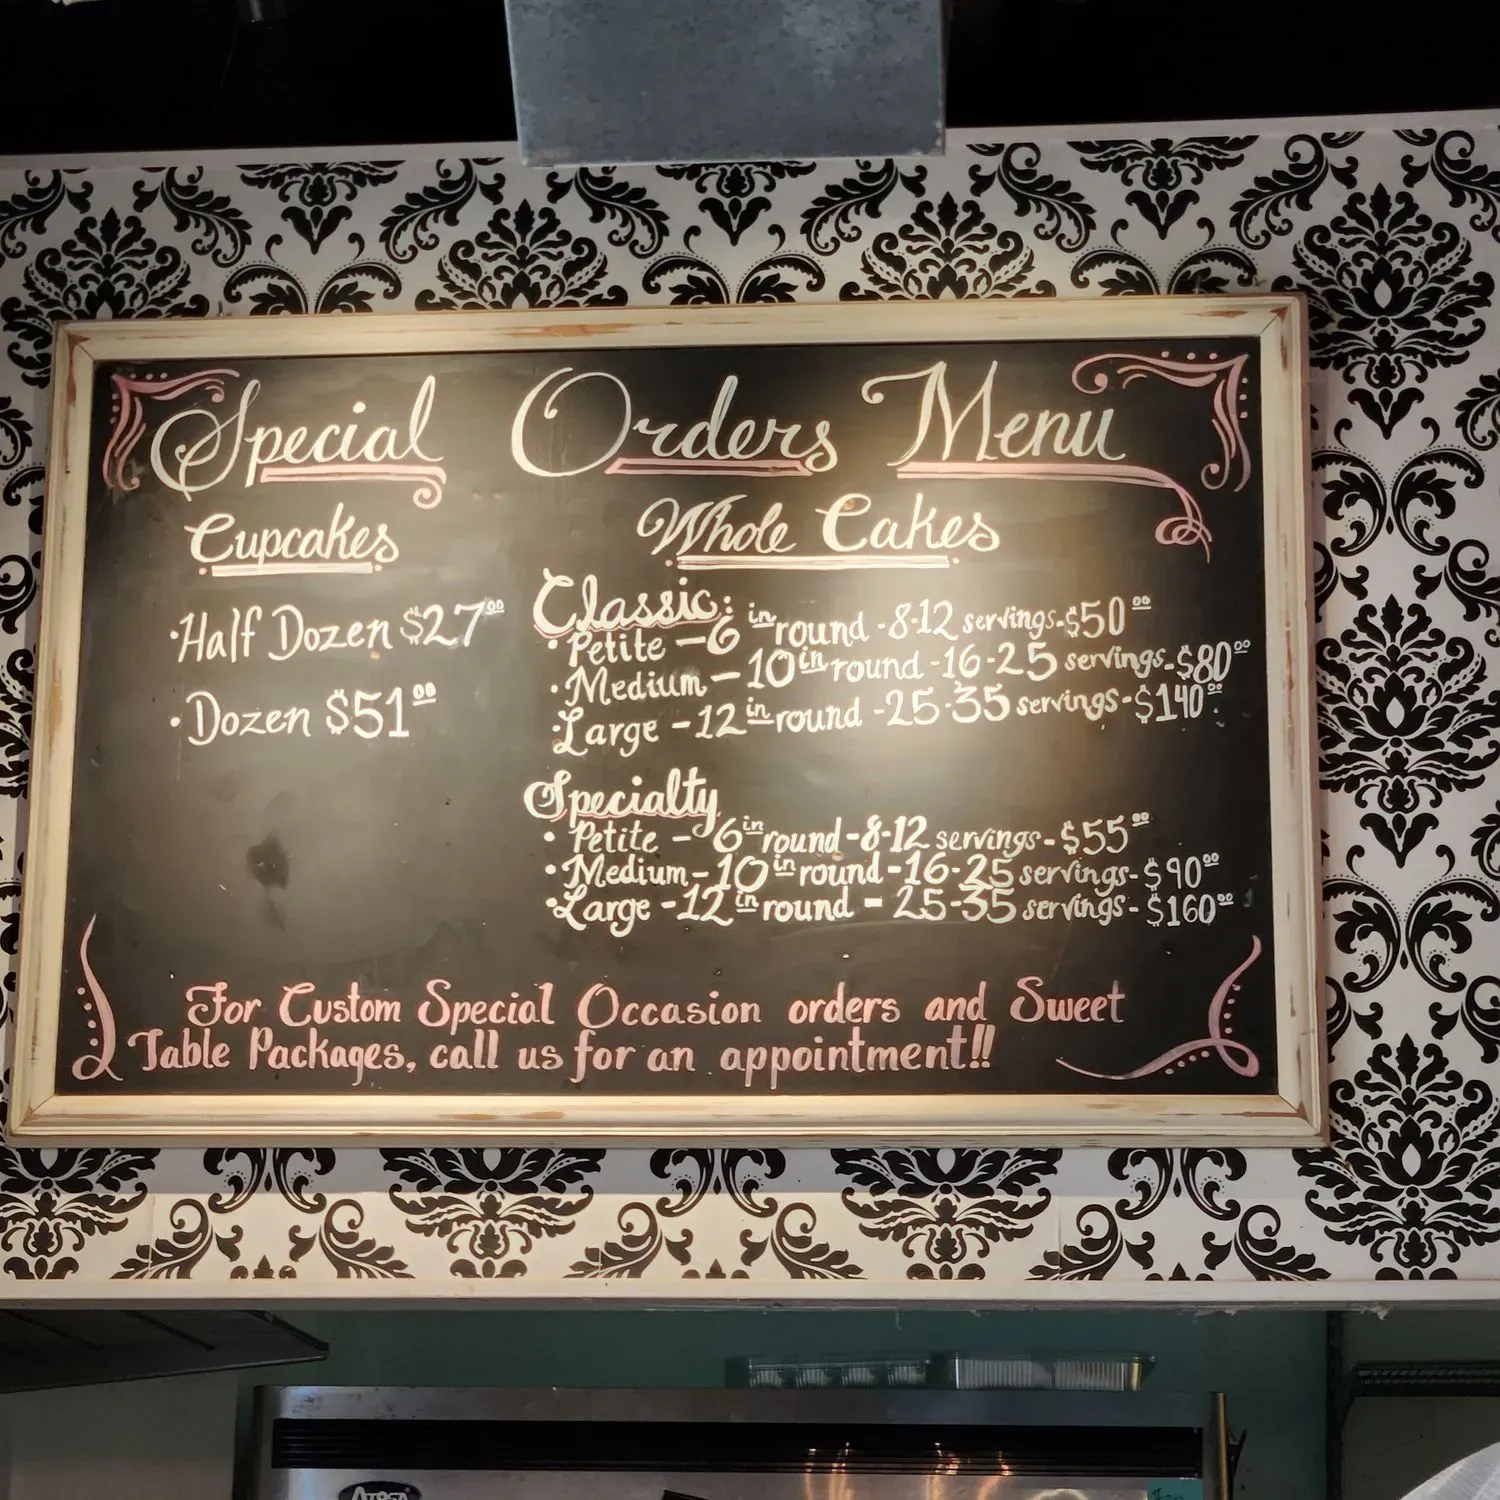 Special Orders Menu
Cupcakes
· Half Dozen $27.00
· Dozen $51.00
Whole Cakes
Classic:
· Petite - 6 in round - 8-12 servings - $50.00
· Medium - 10 in round - 16-25 servings - $80.00
· Large - 12 in round - 25-35 servings - $140.00
Specialty
· Petite - 6 in round - 8-12 servings - $55.00
· Medium - 10 in round - 16-25 servings - $90.00
· Large - 12 in round - 25-35 servings - $160.00
For Custom Special Occasion orders and Sweet
Table Packages, call us for an appointment!!